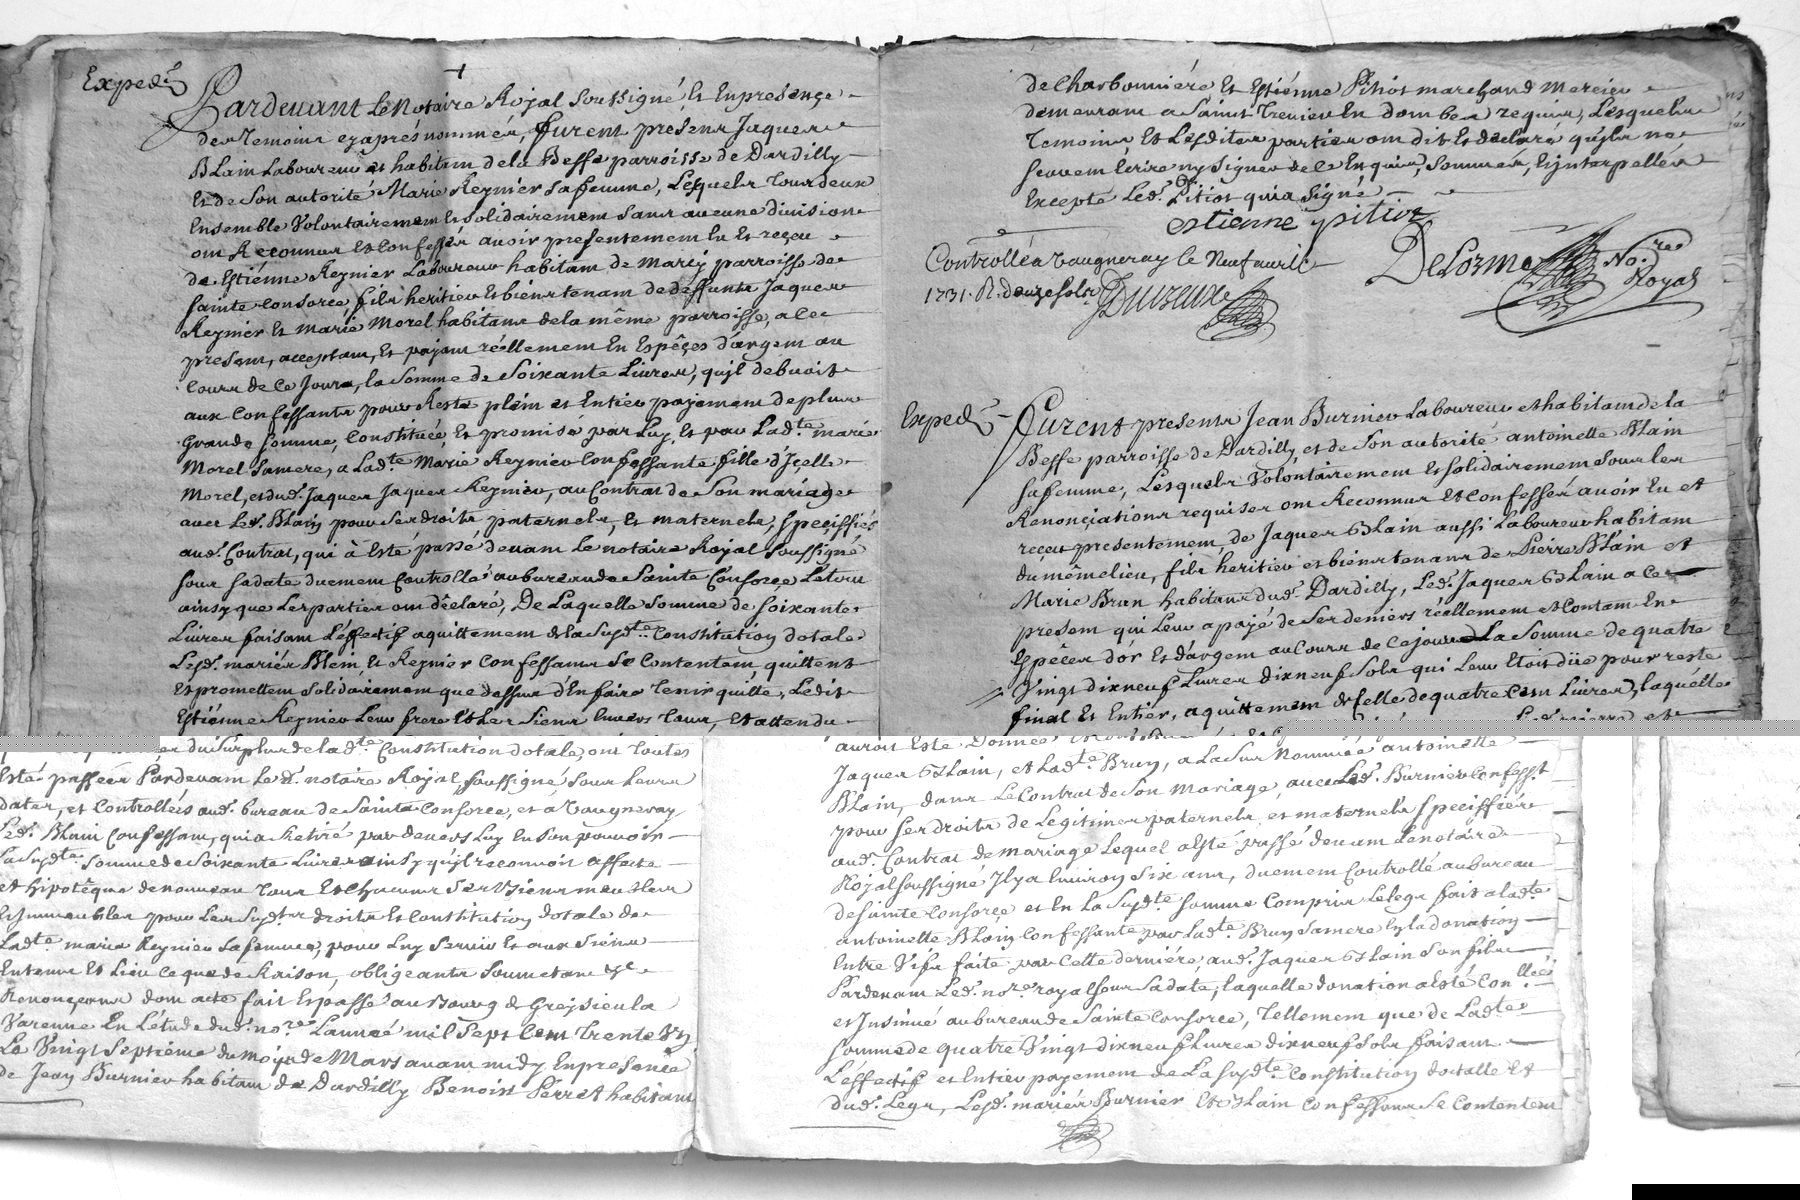 Exped.é
Pardevant Le Notaire Royal Soussigné, Et En presençe
des Temoins ey après nommés, Furent presens Jaques
Blain Laboureur et habitant de la Beffe parroisse de Dardilly
Et de Son autorité Marie Reynier Sa femme, Lesquels Tous deux
Ensemble Volontairement Et Solidairement Sans aucune division
ont Reconnus Et Confessés avoir presentement Eu Et reçeu
de Estiénne Reynier Laboureur habitant de Marcy parroisse de
Sainte Consorce, fils heritier Et biens tenant de deffunts Jaques
Reynier Et Marie Morel habitans de la même parroisse, a Ce
present, acceptant, Et payant réellement En Espêçes d'argent au
Cours de Ce Jours, la Somme de Soixante Livres, qu'jl debvoit
aux Confessants pour Reste plein et Entier payement de plus
Grande Somme, Constituée, Et promise par Luy, Et par Lad.te marie
Morel Sa mere, a Lad.te Marie Reynier Confessante fille d'Jçelle
Morel, et dud. Jaques Jaques Reynier, au Contrat de Son mariage
avec Led. Blain pour Ses droits paternels, Et maternels, Speciffiés
aud. Contrat, qui à Esté passé devant Le notaire Royal Soussigné
Sous Sa date duement Controllé au bureau de Sainte Consorce, Le tout
ainsy que Les parties ont dêclaré, De Laquelle Somme de Soixante
Livres faisant L'effectif aquittement de la Susd.te Constitution dotale
Lesd. mariés Blein Et Reynier Confessans Se Contentent quittent
Et promettent Solidairement que dessus d'En faire Tenir quitte, Ledit
Estiénne Reynier Leur frere Et Les Siens Envers Tous, Et attendu
du Surplus de lad.te Constitution dotale, ont Toutes
Esté passées Pardevant Led. notaire Royal, Soussigné Sous Leurs
dates, et Controllées aud. bureau de Sainte Consorce, et à Vaugneray
Led. Blain Confessant, qui a Retiré par devers Luy En Son pouvoir
La Susd.te Somme de Soixante Livres ainsy qu'jl reconnoit affecte
et hipotêque de nouveau Tous Et Chacuns Ses biens meubles
Et Jmmeubles pour Les Susd.ts droits Et Constitution dotale de
Lad.te marie Reynier Sa femme, pour Luy Servir Et aux Siens
En tems Et Lieu Ce que de Raison, obligeants Soumetans &c
Renonçeans dont acte fait Et passé au Bourg de Greysieu la
Varenne En L'étude dud. no.re L'année mil Sept Cent Trente Vn
Le Vingt Septiéme du mois de Mars avant midy En presence
de Jean Burnier habitant de Dardilly Benoist Perret habitant
de Charbonniére Et Estiénne Pitiot marchand Mercier
demeurant a Saint Trevier En Dombes requis, Lesquels
Temoins Et Lesdites parties ont dit Et declaré qu'jls ne
Scavent Ecrire ny Signer de Ce Enquis, Sommés, Ejnterpellés
Excepté Led. Pitiot qui a Signé
estienne pitiot
DeLorme No.re Royal
Controllé a Vaugneray le Neuf avril
1731. R. douze sols
Duizeux
Exped.é
Furent presens Jean Burnier Laboureur et habitant de la
Beffe parroisse de Dardilly, et de Son autorité antoinette Blain
Sa femme, Lesquels Volontairement Et Solidairement Sous Les
Renonçiations requises ont Reconnus Et Confessés avoir Eu et
reçeu presentement de Jaques Blain aussi Laboureur habitant
du même lieu, fils heritier et biens tenans de Pierre Blain et
Marie Brun habitans dud. Dardilly, Led. Jaques Blain a Ce
present qui Leur a payé de Ses deniers réellement et Contant En
Espêces d'or Et d'argent au Cours de Ce jour La Somme de quatre
Vingt dixneuf Livres dixneuf Sols qui Leur Etoit düe pour reste
final Et Entier, aquittement de Celle de quatre Cent Livres, laquelle
auroit Esté Donnée
Jaques Blain, et Lad.te Brun, a La Sus Nommée antoinette
Blain, dans Le Contrat de Son Mariage, avec Led. Burnier Confess.t
pour Ses droits de Legitimes paternels, et maternels Speciffiés
aud. Contrat de mariage Lequel a Esté passé devant Le notaire
Royal Soussigné Jl y a Environ Six ans, duement Controllé au bureau
de Sainte Consorce et En La Susd.te Somme Compris Le legs fait a lad.te
antoinette Blain Confessante par Lad.te Brun Sa mere En la donation
Entre Vifs faite par Cette derniére, aud. Jaques Blain Son fils
Pardevant Led. no.re royal Sous Sa date, laquelle donation a Esté Con.llée
et Jnsinué au bureau de Sainte Consorce, Tellement que de Lad.te
Somme de quatre Vingt dixneuf Livres dixneuf Sols faisant
L'effectif et Entier payement de La Susd.te Constitution dotalle Et
dud. Legs, Lesd. mariés Burnier Et Blain Confessans Se Contentent